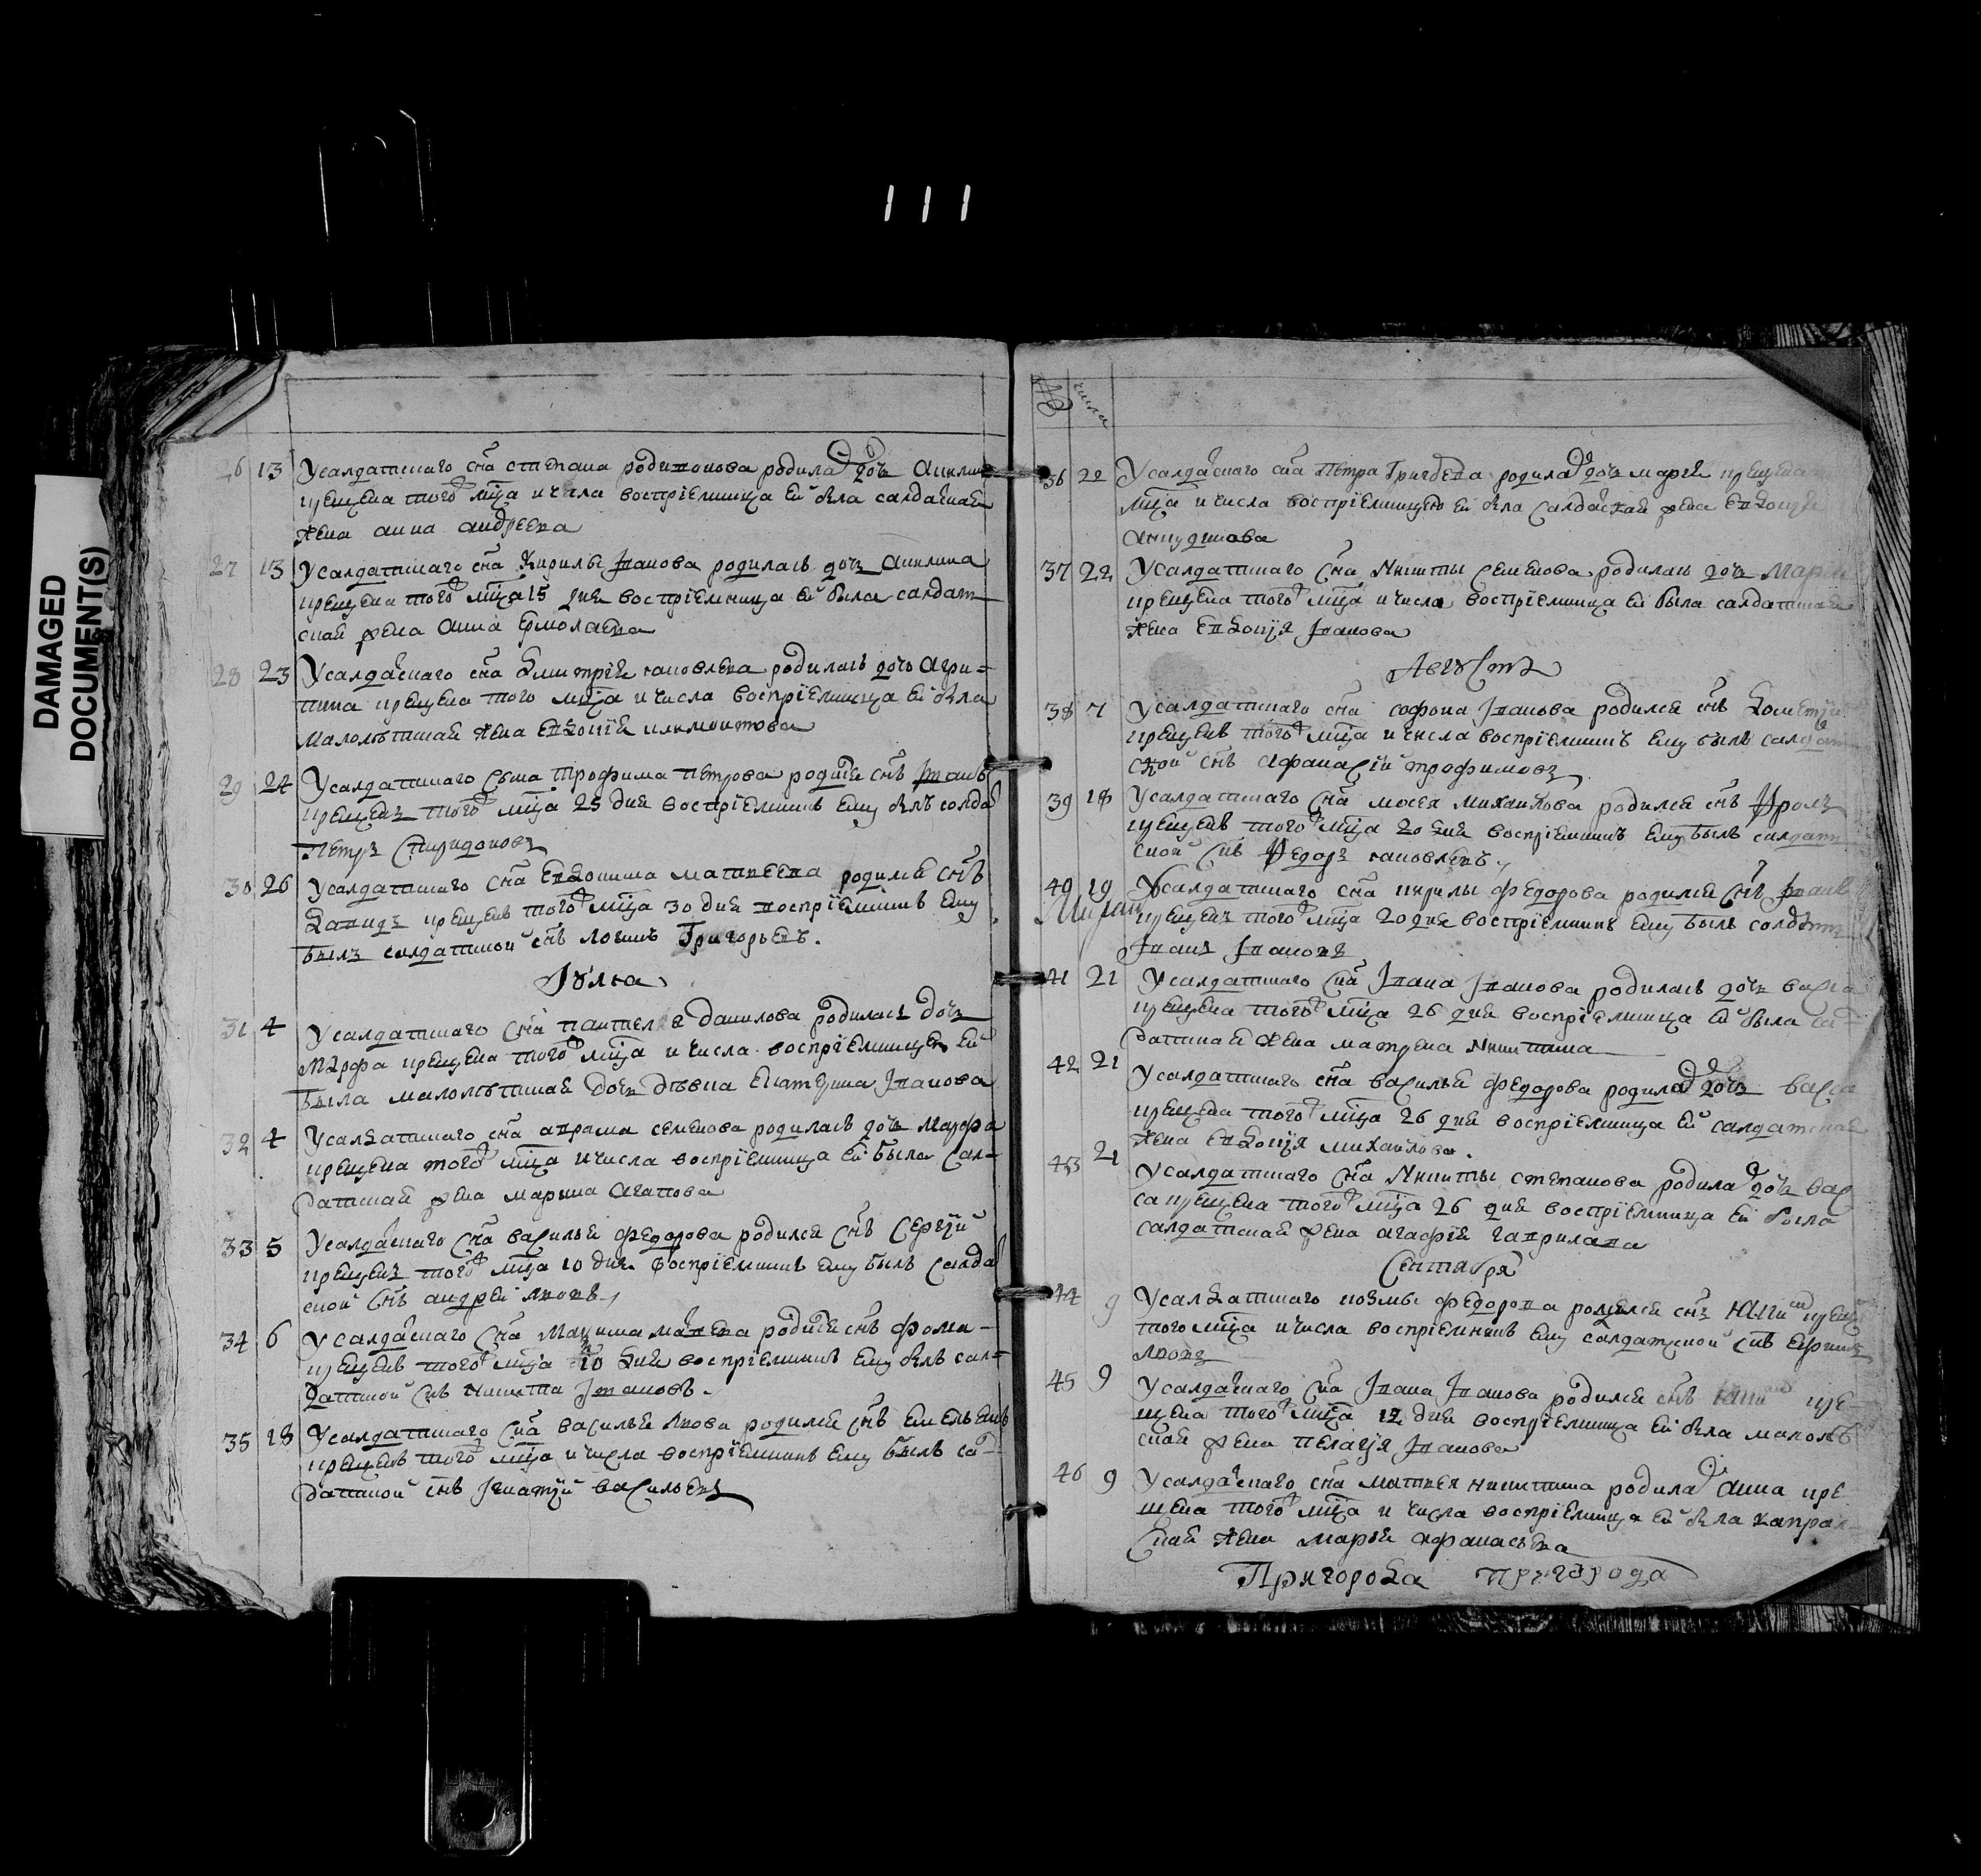 111
DAMAGED
DOCUMENT(S)
26 13 Усалдатскаго сна степана родионова родилас дочь Акилин
крещена того мца и числа воспрiемница ей была салдацкая
жена анна андреева
27 13 Усалдатскаго сна Кирилы Iванова родилась дочь акилина
крещена того мца 15 дня воспрiемница ей была салдат
ская жена Анна Ермолаева
28 23 Усалдацкаго сна Дмитрея яковлева родилась дочь Агри=
пина крещена того мца и числа воспрiемница ей была
малолѣтная жена Евдокия
29 24 Усалдатскаго сына Трофима Петрова родися снъ Iванъ
крещенъ того мца 25 дня воспрiемникъ ему былъ солда
Петръ Спиридоновъ
30 26 Усалдатскаго сна Евдокима матвеева родился снъ
Давидъ крещенъ того мца 30 дня воспрiемникъ ему
былъ салдатской снъ логинъ Григорьевъ.
Iюля
31 4 Усалдатскаго сна пантелея данилова родилась дочь
Марфа крещена того мца и числа воспрiемницею ей
была малолѣтная дочь дѣвка Екатерина Iванова
32 4 Усалдатскаго сна аврама семенова родилась дочь Марфа
крещена того мца и числа воспрiемница ей была сал=
датская жена марина Агапова
33 5 Усалдацкаго сна василья федорова родился снъ Сергiй
крещенъ того мца 10 дня воспрiемникъ ему былъ салда
ской снъ андрей яковъ
34 6 Усалдацкаго сна Максима родися снъ фома
крещенъ того мца 10 дня воспрiемникъ ему былъ сал=
датской снъ никита Iвановъ.
35 18 Усалдатскаго сна василья якова родился снъ Емельянъ
крещенъ того мца и числа воспрiемникъ ему былъ са
датской снъ Iгнатiй васильевъ
№ числа
36 22 Усалдацкаго сна Петра Григорева родилас дочь марея крещена
мца и числа воспрiемницею ей была салдацкая жена Евдокия
37 22 Усалдатскаго сна Никиты семенова родилась дочь Мария
крещена того мца и числа воспрiемница ей была салдатская
жена Евдокiя Iванова
Августъ
38 7 Усалдатскаго сна софона Iванова родился снъ
крещенъ того мца и числа воспрiемникъ ему былъ салдат
ской снъ Афанасiй трофимовъ
39 18 Усалдатскаго сна мосея михаилова родился снъ Фролъ
крещенъ того мца 20 дня воспрiемникъ ему былъ салдат
ской снъ Федоръ яковлевъ.
40 19 Усалдатскаго сна кирилы федорова родился снъ Iванъ
крещенъ того мца 20 дня воспрiемникъ ему былъ солдатъ
Iванъ Iвановъ
41 21 Усалдатскаго сна Iвана Iванова родилась дочь васса
крещена того мца 26 дня воспрiемница ей была сал
датская жена матрена Никитина
42 21 Усалдатскаго сна василья федорова родилас дочь васса
крещена того мца 26 дня воспрiемница ей салдатская
жена Евдокiя михаилова.
43 21 Усалдатскаго сна Никиты степанова родилас дочь вас
са крещена того мца 26 дня воспрiемница ей была
салдатская жена агафия гаврилава
Сентября
44 9 Усалдатскаго козмы федорова родился снъ крещ
того мца и числа воспрiемникъ ему салдатской снъ Ефимъ
45 9 Усалдацкаго сна Iвана Iванова родился снъ кре
щена того мца 12 дня воспрiемница ей была малолѣ
ская жена пелагiя Iванова
46 9 Усалдацкаго сна матвея никитина родилас анна кре
щена того мца и числа воспрiемница ей была капрал
ская жена мария афанасьева
Пригорода пригорода